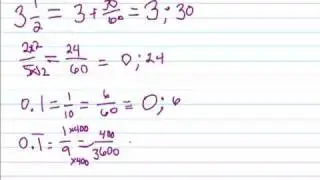 3 1/2 = 3 + 30/60 = 3 ; 30
2x2/5x12 = 24/60 = 0 ; 24
0.1 = 1/10 = 6/60 = 0 ; 6
0.1̅ = 1 x400/9 x400 = 400/3600